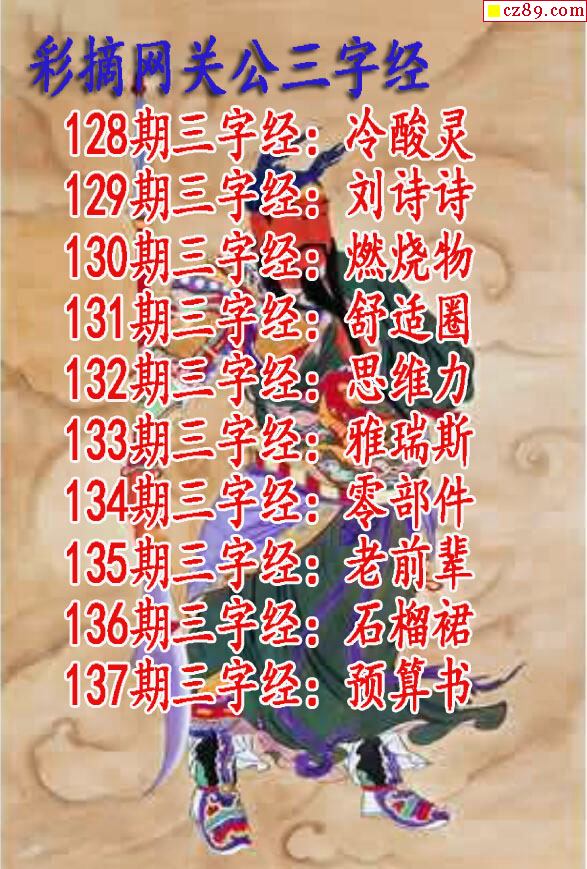 cz89.com
彩摘网关公三字经
128期三字经：冷酸灵
129期三字经：刘诗诗
130期三字经：燃烧物
131期三字经：舒适圈
132期三字经：思维力
133期三字经：雅瑞斯
134期三字经：零部件
135期三字经：老前辈
136期三字经：石榴裙
137期三字经：预算书